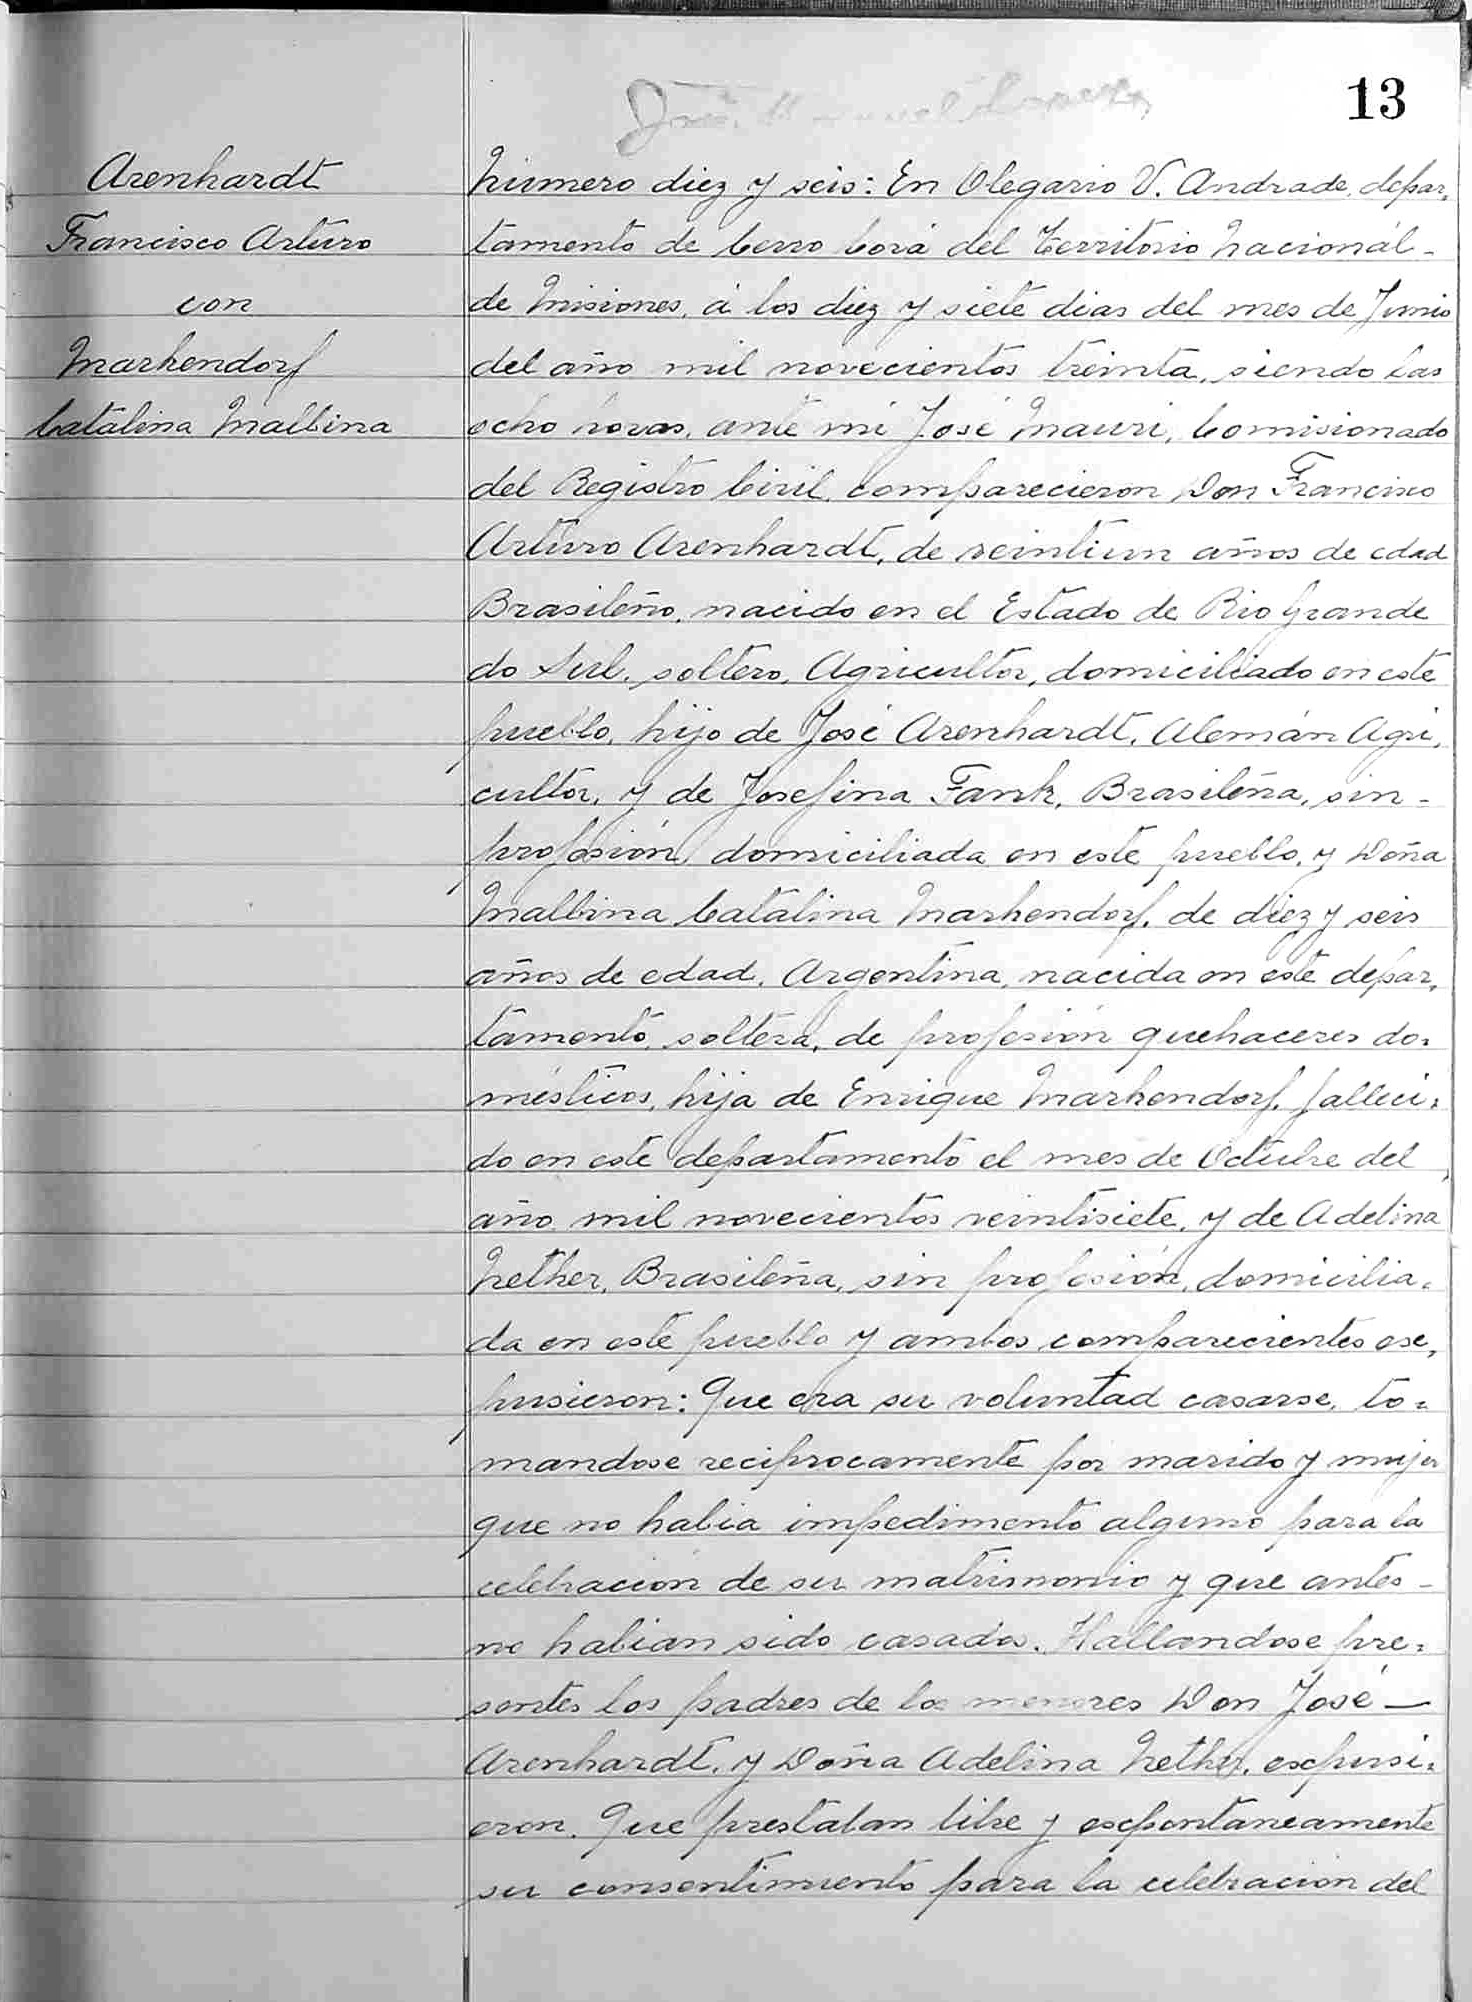 13
Arenhardt
Francisco Arturo
con
Markendorf
Catalina Malbina
Número diez y seis: En Olegario V. Andrade, depar,
tamento de Cerro Corá del Territorio Nacionál -
de Misiones, á los diez y siete dias del mes de Junio
del año mil novecientos treinta, siendo las
ocho horas, ante mí José Mauri, Comisionado
del Registro Civil, comparecieron Don Francisco
Arturo Arenhardt, de veintiun años de edad
Brasileño, nacido en el Estado de Rio Grande
do Sul, soltero, Agricultor, domiciliado en este
pueblo, hijo de José Arenhardt, Alemán Agri,
cultor, y de Josefina Fank, Brasileña, sin -
profesión, domiciliada en este pueblo, y Doña
Malbina Catalina Markendorf, de diez y seis
años de edad, Argentina, nacida en este depar,
tamento, soltera, de profesión quehaceres do=
mésticos, hija de Enrique Markendorf, falleci=
do en este departamento el mes de Octubre del
año mil novecientos veintisiete, y de Adelina
Nether, Brasileña, sin profesión, domicilia=
da en este pueblo y ambos comparecientes ex,
pusieron: Que era su voluntad casarse, to=
mandose reciprocamente por marido y mujer
que no habia impedimento alguno para la
celebración de su matrimonio y que antes -
no habian sido casados. Hallandose pre=
sentes los padres de los menores Don José —
Arenhardt, y Doña Adelina Nether, expusi=
eron. Que prestaban libre y expontaneamente
su consentimiento para la celebración del